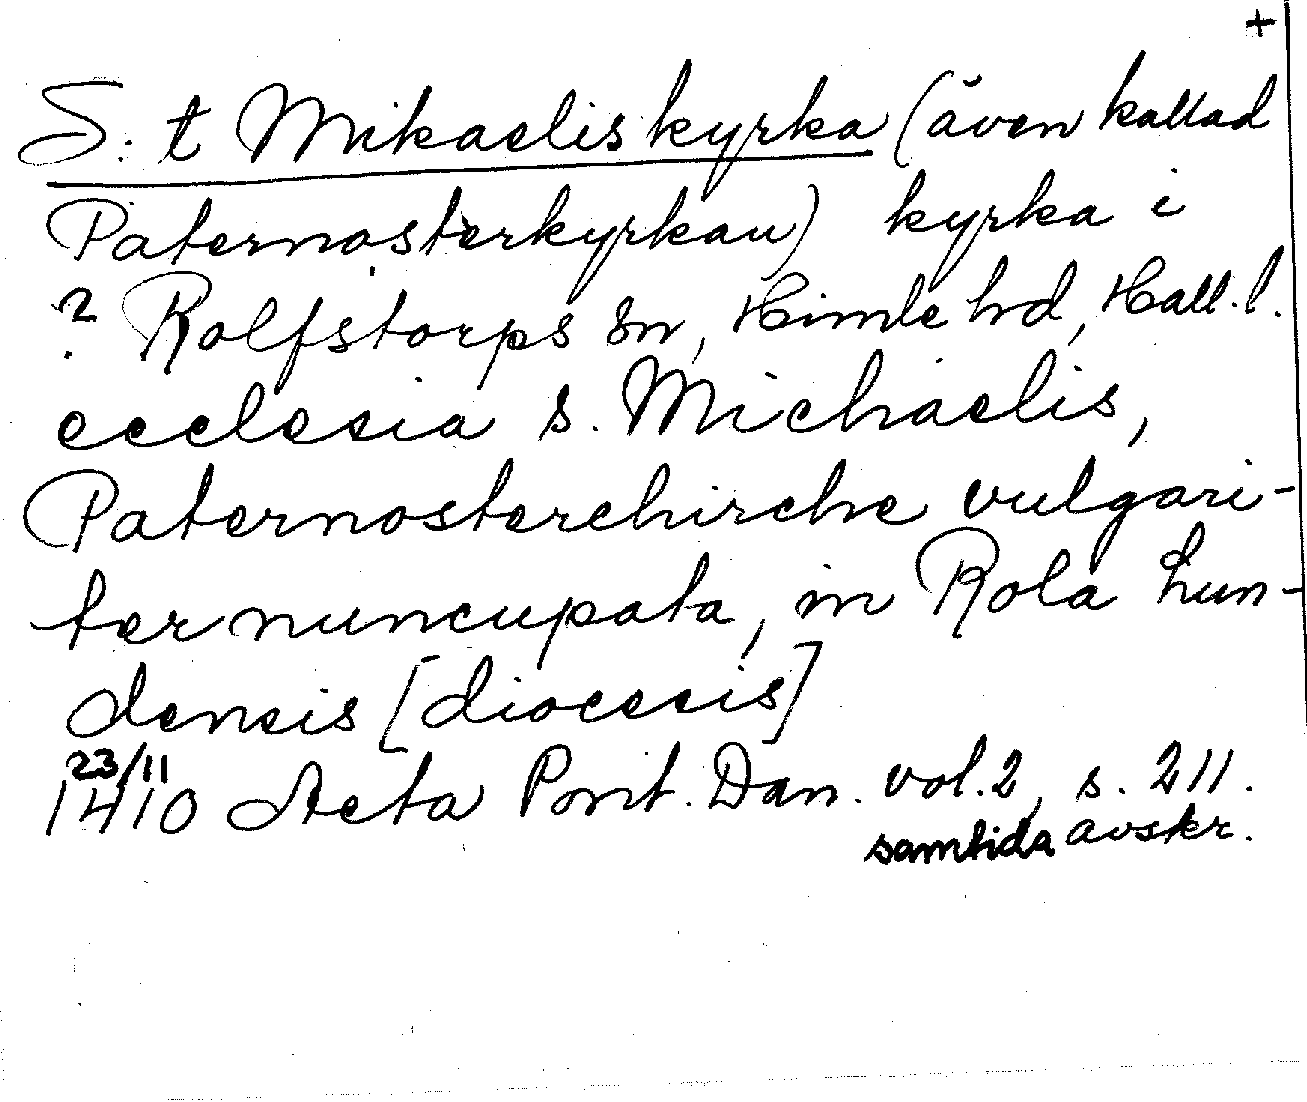 +
S:t Mikaelis kyrka (även kallad
Paternosterkyrkan) kyrka i
? Rolfstorps sn, Himle hd, Hall. l.
ecclesia s. Michaelis,
Paternosterchirche vulgari-
ter nuncupata, in Rola lun-
densis [diocesis]
23/11
1410 Acta Pont. Dan. vol. 2, s. 211.
samtida avskr.